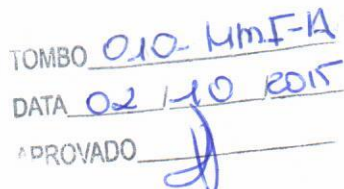 TOMBO 010-MMI-A
DATA 02/10/2015
APROVADO